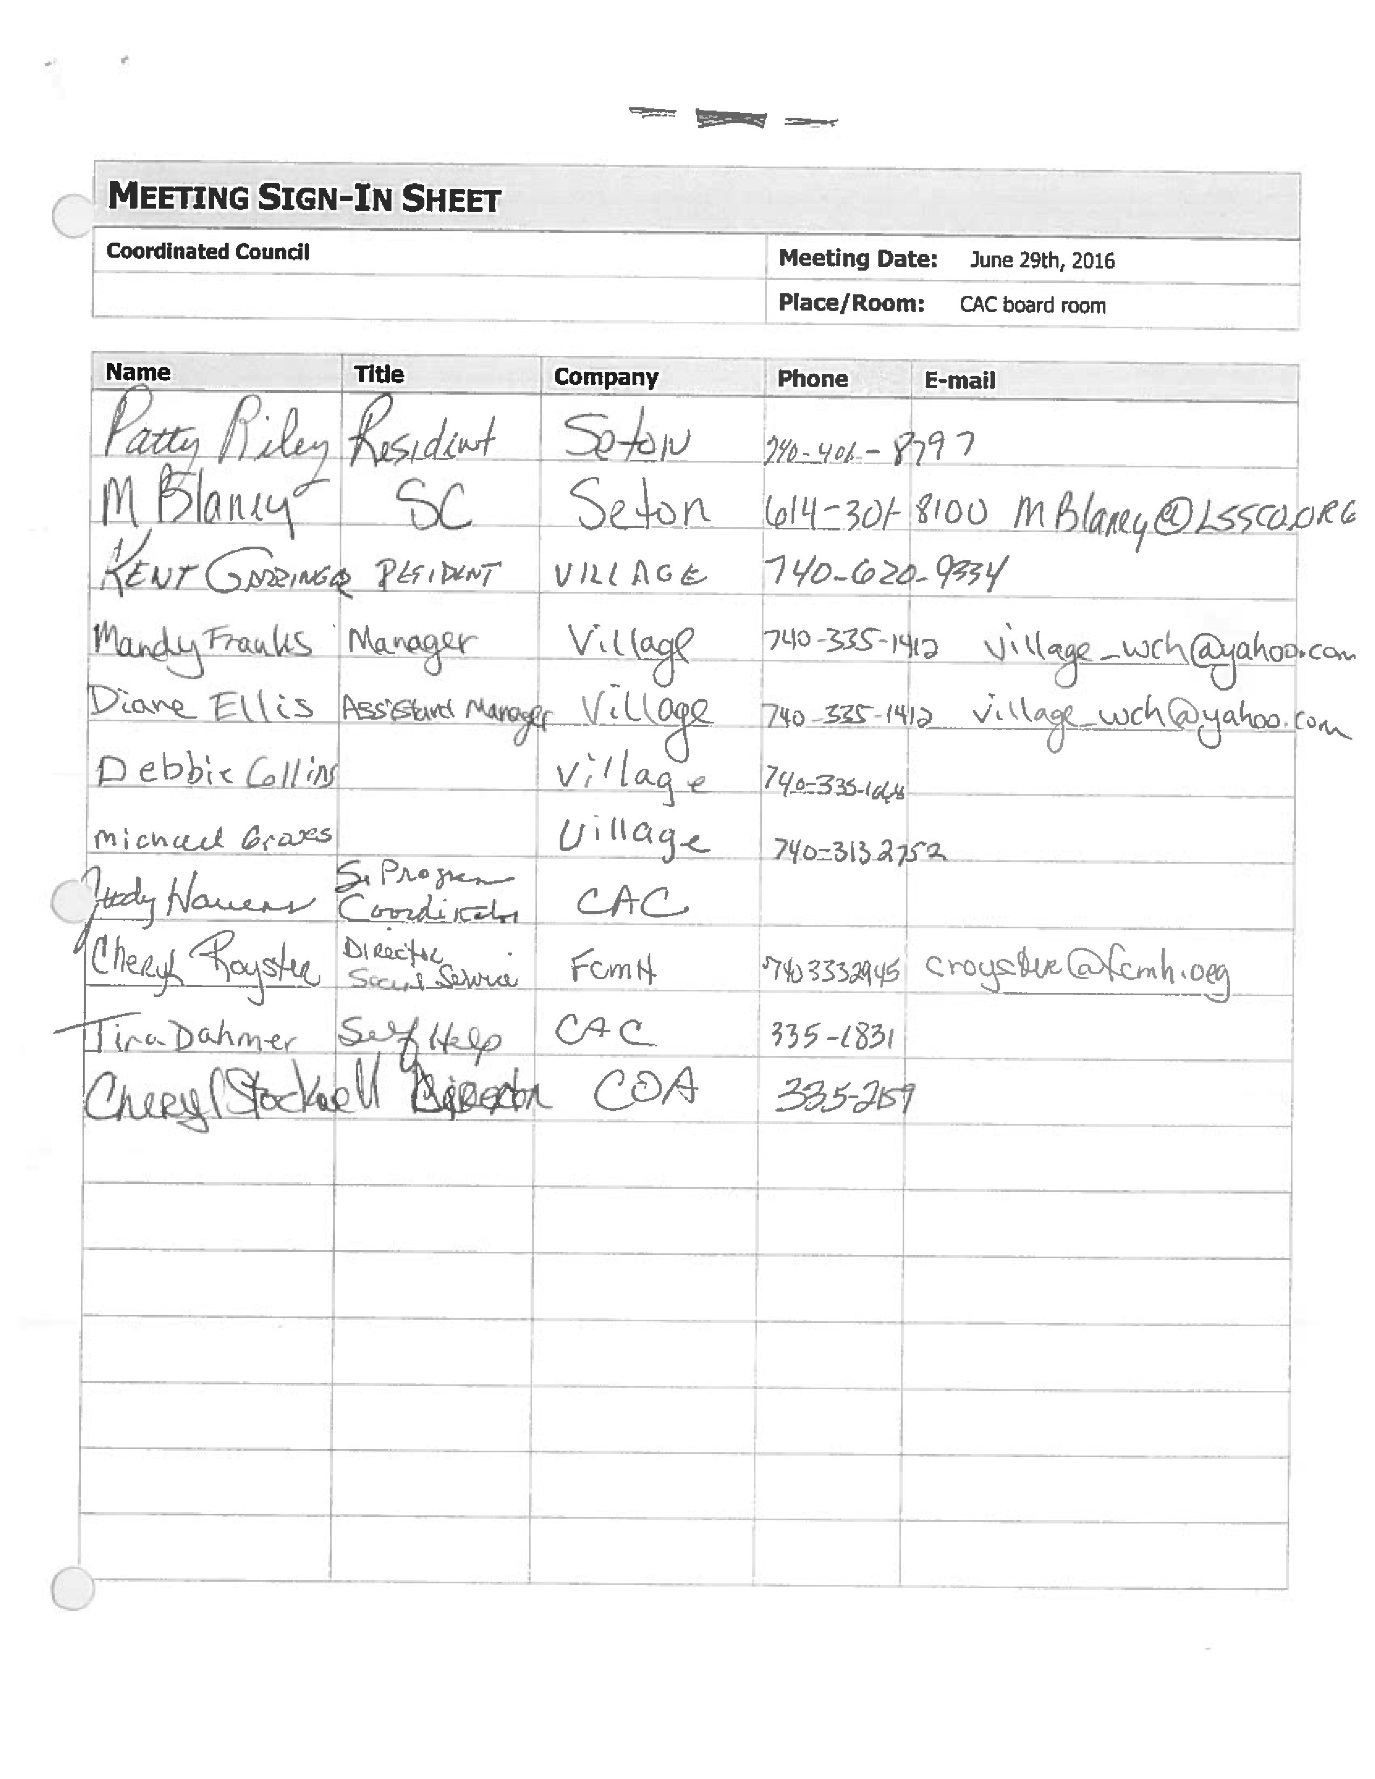 MEETING SIGN-IN SHEET
Coordinated Council
Meeting Date: June 29th, 2016
Place/Room: CAC board room
Name Title Company Phone E-mail
Patty Riley Resident Seton 740-401-8797
M Blaney SC Seton 614-301-8100 MBlaney@LSSCO.ORG
KENT RESIDENT VILLAGE 740-620-9334
Mandy Franks Manager Village 740-335-1412 village_wch@yahoo.com
Diane Ellis Assistant Manager Village 740-335-1412 village_wch@yahoo.com
Debbie Collins Village
Michael Graves Village 740-313 2752
Sr Program
Judy Havens Coordinator CAC
Director
Cheryl Royster Social Service FCMH 740 333 2945 croyster@fcmh.org
Tina Dahmer Self Help CAC 335-1831
Cheryl Stockwell Director COA 335-2159